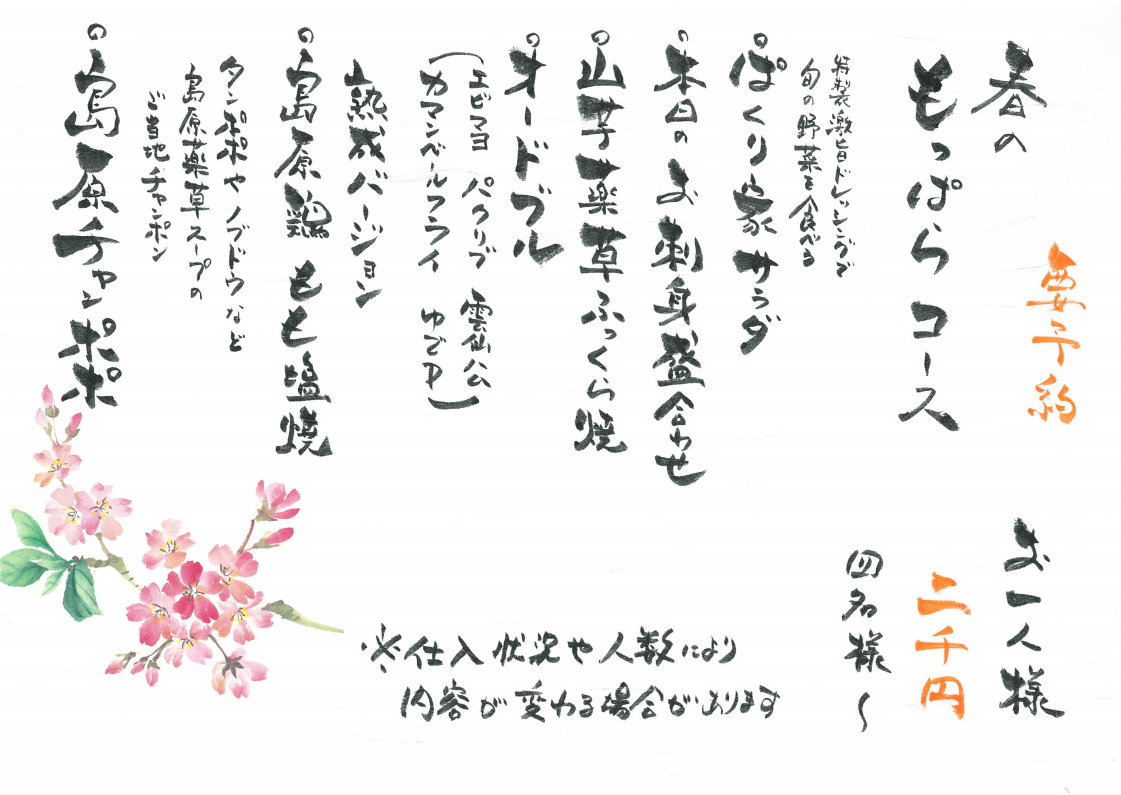 春の
もっぱらコース
要予約
お一人様
二千円
四名様～
特製激旨ドレッシングで
旬の野菜を食べる
◎ぱくり家サラダ
◎本日のお刺身盛合わせ
◎山芋薬草ふっくら焼
◎オードブル
（エビマヨ パクリブ 雲仙公
カマンベールフライ ゆでP）
熟成バージョン
◎島原鶏もも塩焼
タンポポやノブドウなど
島原薬草スープの
ご当地チャンポン
◎島原チャンポポ
※仕入状況や人数により
内容が変わる場合があります